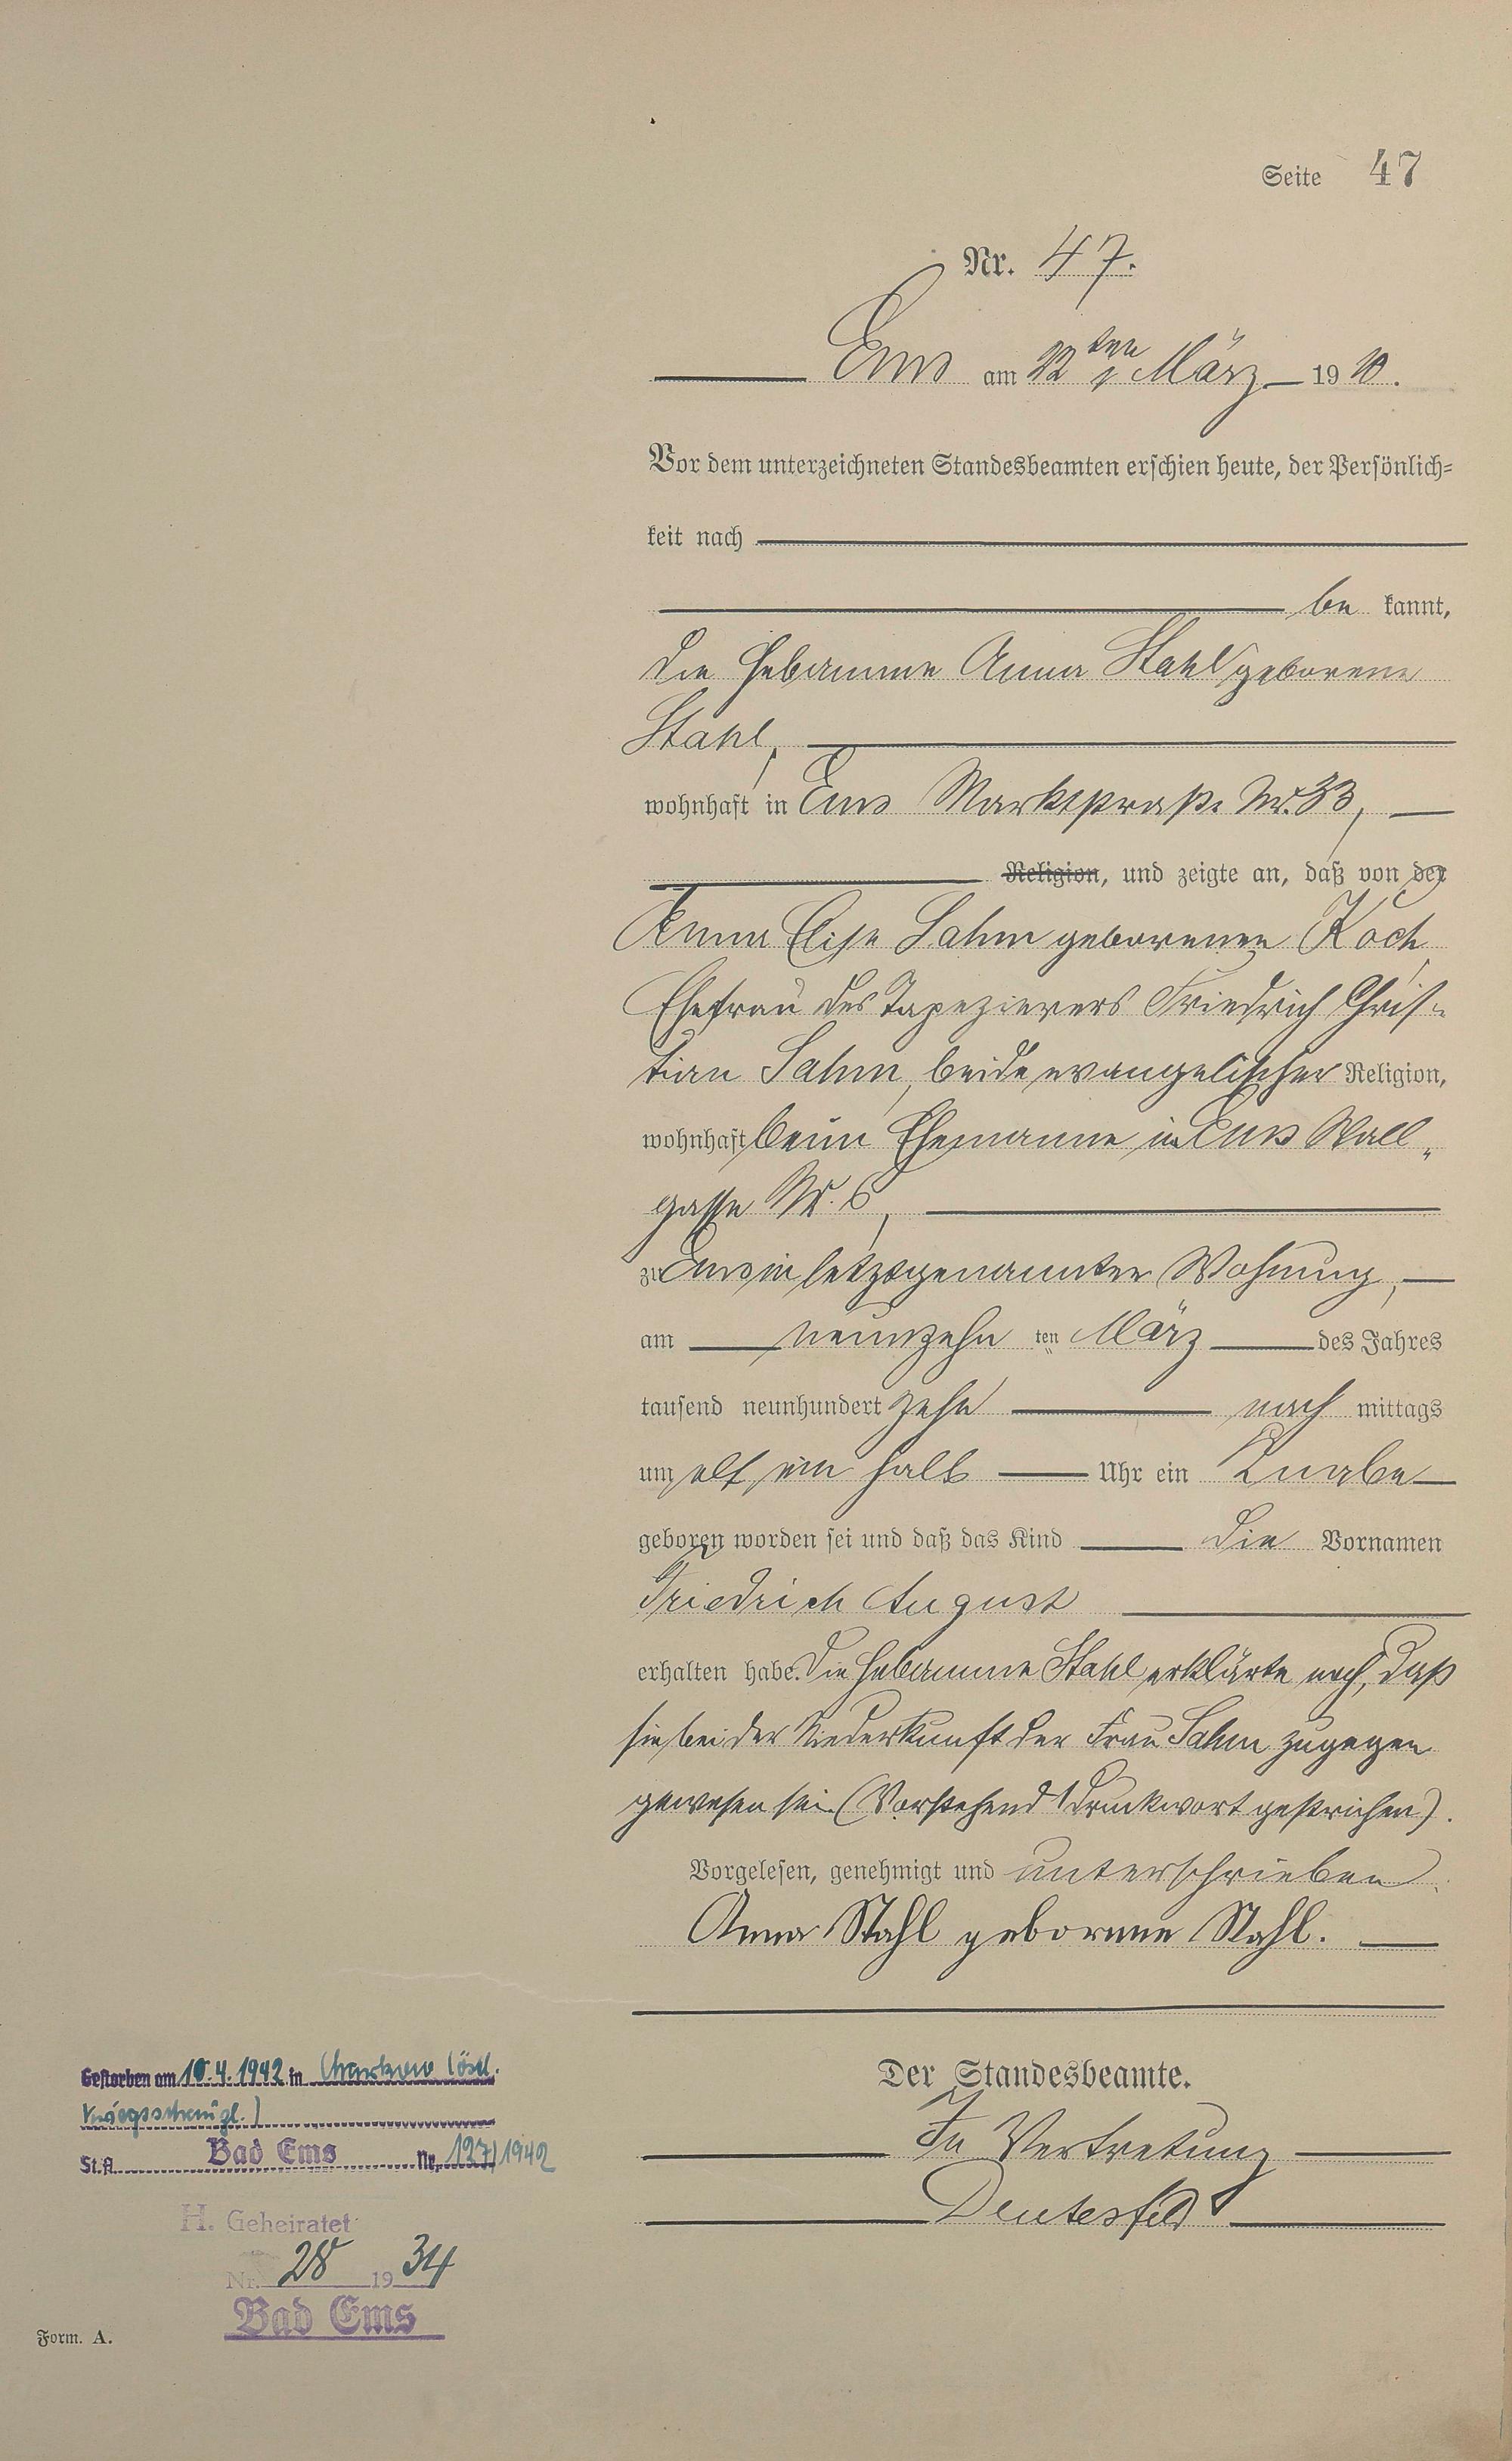 Seite 47
Nr. 47.
Ems am 22ten März 1910.
Vor dem unterzeichneten Standesbeamten erschien heute, der Persönlich-
keit nach
be kannt,
die Hebamme Anna Stahl geborene
Stahl,
wohnhaft in Ems Marktstraße Nr. 33,
Religion, und zeigte an, daß von der
Anna Elise Sahm geborenen Koch,
Ehefrau des Tapezierers Friedrich Chris-
tian Sahm, beide evangelischer Religion,
wohnhaft beim Ehemanne in Ems Wall-
gasse Nr. 6,
zu Ems in letztgenannter Wohnung,
am neunzehn ten März des Jahres
tausend neunhundert zehn nach mittags
um elf ein halb Uhr ein Knabe
geboren worden sei und daß das Kind die Vornamen
Friedrich August
erhalten habe. Die Hebamme Stahl erklärte noch, daß
sie bei der Niederkunft der Frau Sahm zugegen
gewesen sei. (Vorstehend 1 Druckwort gestrichen).
Vorgelesen, genehmigt und unterschrieben.
Anna Stahl geborene Stahl.
Der Standesbeamte.
In Vertretung
Deutesfeld
Gestorben am 10.4.1942 in Charkow (östl.
Kriegsschaupl.)
St.A. Bad Ems Nr. 127/1942
H. Geheiratet
Nr. 28 1934
Bad Ems
Form. A.